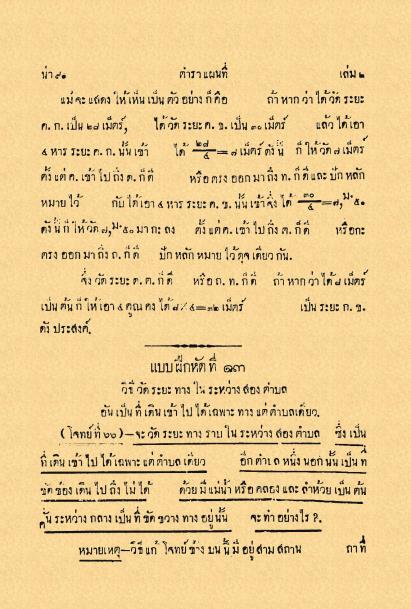 น่า ๙๑ ตำราแผนที่ เล่ม ๒
แม้ จะ แสดง ให้ เห็น เป็น ตัว อย่าง ก็ คือ ถ้า หาก ว่า ได้ วัด ระยะ
ค. ก. เป็น ๒๘ เม็ตร์, ได้ วัด ระยะ ค. ข. เป็น ๓๐ เม็ตร์ แล้ว ได้ เอา
๔ หาร ระยะ ค. ก. นั้น เข้า ได้ ๒๘/๔ = ๗ เม็ตร์ ดัง นี้ ก็ ให้ วัด ๗ เม็ตร์
ตั้ง แต่ ค. เข้า ไป ถึง ด. ก็ ดี หรือ ตรง ออก มา ถึง ท. ก็ ดี และ ปัก หลัก
หมาย ไว้ กับ ได้ เอา ๔ หาร ระยะ ค. ข. นั้น เข้า จึ่ง ได้ ๓๐/๔ = ๗, ม. ๕๐
ดัง นี้ ก็ ให้ วัด ๗, ม. ๕๐ มา กะ ลง ตั้ง แต่ ค. เข้า ไป ถึง ต. ก็ ดี หรือ กะ
ตรง ออก มา ถึง ถ. ก็ ดี ปัก หลัก หมาย ไว้ ดุจ เดียว กัน.
จึ่ง วัด ระยะ ด. ต. ก็ ดี หรือ ถ. ท. ก็ ดี ถ้า หาก ว่า ได้ ๘ เม็ตร์
เป็น ต้น ก็ ให้ เอา ๔ คูณ คง ได้ ๘ ⁒ ๔ = ๓๒ เม็ตร์ เป็น ระยะ ก. ข.
ดัง ประสงค์.
แบบ ฝึก หัด ที่ ๑๓
วิธี วัด ระยะ ทาง ใน ระหว่าง สอง ตำบล
อัน เป็น ที่ เดิน เข้า ไป ได้ เฉพาะ ทาง แต่ ตำบล เดียว.
(โจทย์ ที่ ๖๖)—จะ วัด ระยะ ทาง ราบ ใน ระหว่าง สอง ตำบล ซึ่ง เป็น
ที่ เดิน เข้า ไป ได้ เฉพาะ แต่ ตำบล เดียว อีก ตำบล หนึ่ง นอก นั้น เป็น ที่
ขัด ข้อง เดิน ไป ถึง ไม่ ได้ ด้วย มี แม่น้ำ หรือ คลอง และ ลำห้วย เป็น ต้น
คั่น ระหว่าง กลาง เป็น ที่ ขัด ขวาง ทาง อยู่ นั้น จะ ทำ อย่างไร ?.
หมายเหตุ—วิธี แก้ โจทย์ ข้าง บน นี้ มี อยู่ สาม สถาน ถา ที่